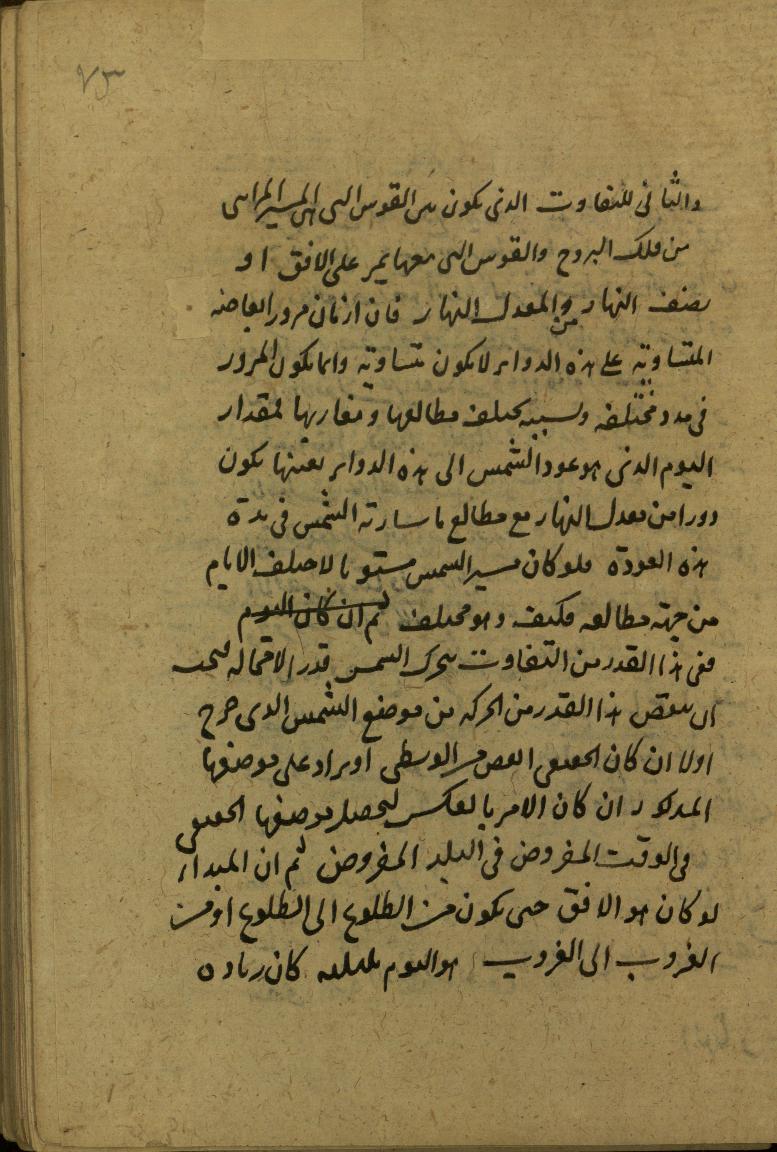 والثانى للتفاوت الذى يكون بين القوس التى هى المسير المرئى
من فلك البروج والقوس التى معها يمر على الافق او
نصف النهار من المعدل النهار فان ازمان مرور ابعاضه
المتساوية على هذه الدواير لا يكون متساوية وانما يكون المرور
فى مدد مختلفة وبسببه يختلف مطالعها ومغاربها فمقدار
اليوم الذى هو عود الشمس الى هذه الدواير بعينها يكون
دورا من معدل النهار مع مطالع ما سارته الشمس فى مدة
هذه العودة فلو كان مسير الشمس مستويا لاختلف الايام
من جهة مطالعه فكيف وهو مختلف ثم ان كان اليوم
ففى هذا القدر من التفاوت يتحرك الشمس قدرا لا محاله فيجب
ان ينقص هذا القدر من الحركة من موضع الشمس الذى خرج
اولا ان كان الحقيقى انقص من الوسطى او يزاد على موضعها
المذكور ان كان الامر بالعكس ليحصل موضعها الحقيقى
فى الوقت المفروض فى البلد المفروض ثم ان المبداء
لو كان هو الافق حتى يكون من الطلوع الى الطلوع او من
الغروب الى الغروب هو اليوم بليلته كان زيادة